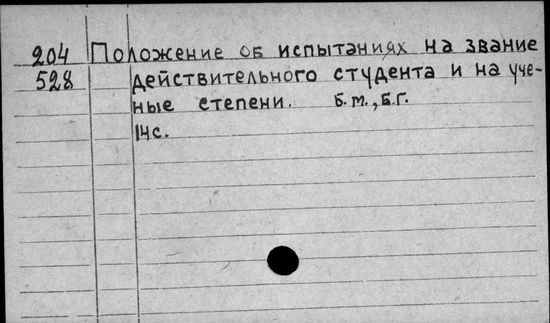 204 Положение об испытаниях на звание
528 действительного студента и на уче-
ные степени. б.м., б.г.
14с.